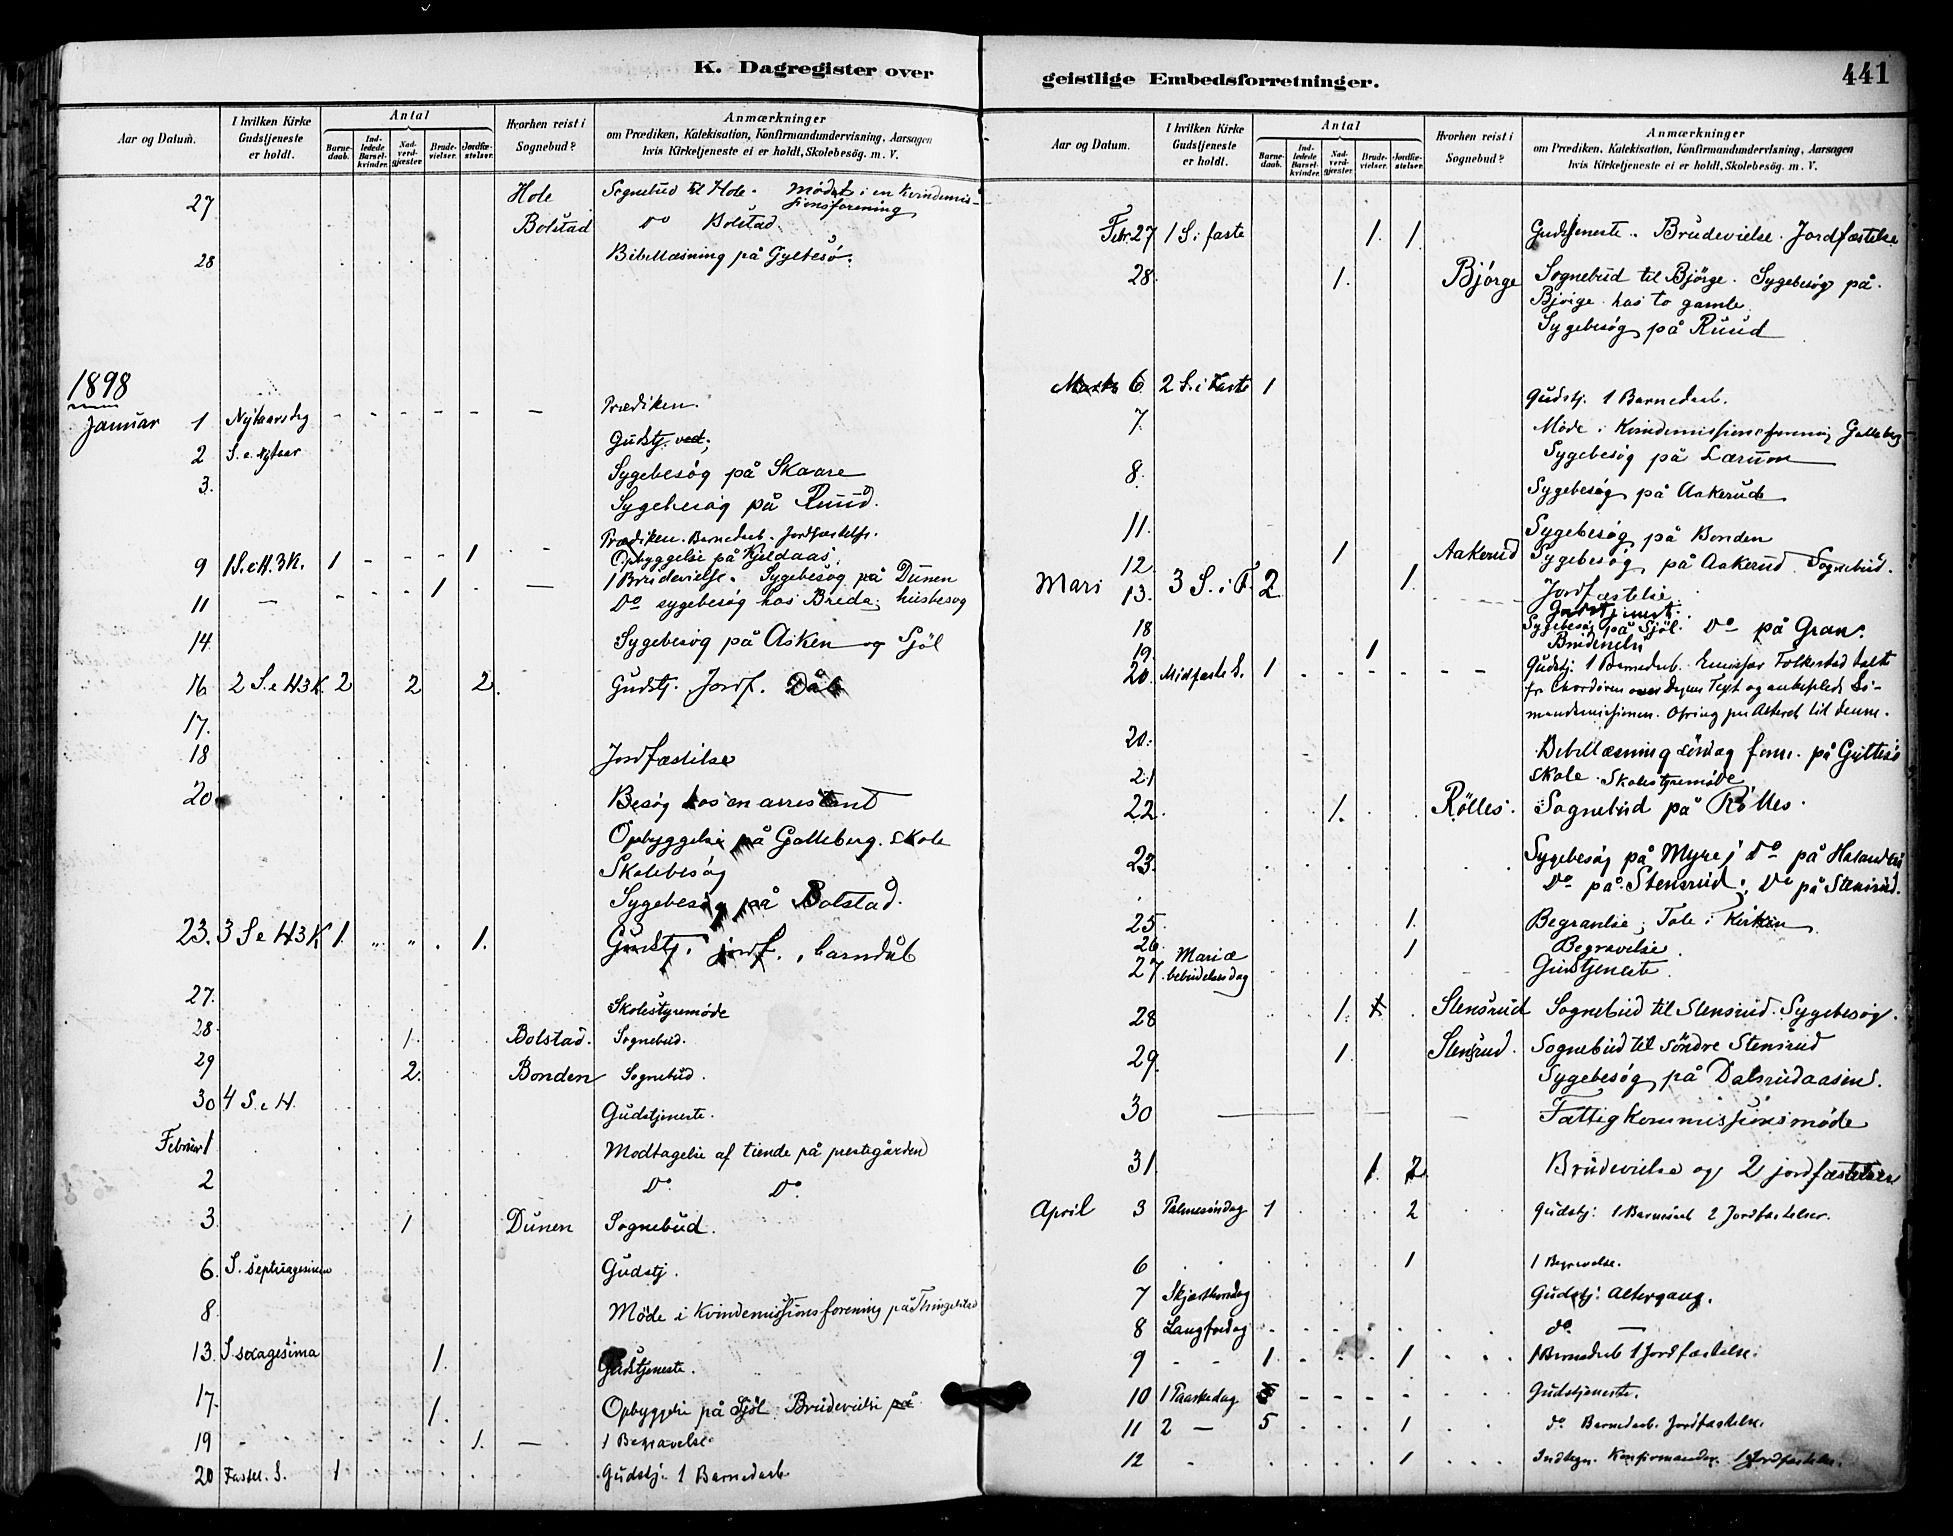 K. Dagregister over
Aar og Datum.
I hvilken Kirke Gudstjeneste er holdt.
Antal
Barnedaab.
Indledede Barselkvinder.
Nadverdgjæster.
Brudevielser.
Jordfæstelser.
Hvorhen reist i Sognebud?
Anmærkninger
om Prædiken, Katekisation, Konfirmandundervisning, Aarsagen
hvis Kirketjeneste ei er holdt, Skolebesøg. m. V.
27 Hole Sognebud til Hole. Mödet i en kvindemis-
sionsforening
Bolstad Do Bolstad.
28 Bibellæsning på Gyltesö.
1898
Januar 1 Nytaarsdag - - - - - - Prædiken.
2 S. e. Nytaar Gudstj. ved;
3. Sygebesög på Skaare
Sygebesög på Ruud.
Prædiken. Barnedaab. Jordfæstelse.
9 1 S. e. H. 3 K. 1 - - - 1 - Opbyggelse på Kjeldaas.
11 - - - - 1 - 1 Brudevielse. Sygebesög på Dunen
Do sygebesög hos Breda; husbesog
14. Sygebesög på Asken og Sjöl
16 2 S. e H 3 K. 2 2 2. Gudstj. Jordf. Dåb
17.
18 Jordfæstilse
20 Besög hos en arrestant
Opbyggelse på Galleberg. skole
Skolebesøg
Sygebesög på Bolstad.
23. 3 S e H 3 K. 1. " " . 1. Gudstj. jordf., barndåb
27. Skolestyremöde
28 1. Bolstad. Sognebud.
29 2. Bonden Sognebud.
30 4 S. e H. Gudstjeneste.
Februar 1 Modtagelse af tiende på prestegården
2 Do Do
3 1 Dunen Sognebud.
6. S. septuagesima Gudstj.
8 Möde i Kvindemissionsforening på Thingelstad
13. S sexagesima 1. Gudstjeneste.
17. 1. Opbyggelse på Sjöl. Brudevielse på
19 1. - 1 Begravelse
20 Fastel. S. 1 Gudstj. 1 Barnedaab
geistlige Embedsforretninger.
441
Aar og Datum.
I hvilken Kirke Gudstjeneste er holdt.
Antal
Barnedaab.
Indledede Barselkvinder.
Nadverdgjæster.
Brudevielser.
Jordfæstelser.
Hvorhen reist i Sognebud?
Anmærkninger
om Prædiken, Katekisation, Konfirmandundervisning, Aarsagen
hvis Kirketjeneste ei er holdt, Skolebesög. m. V.
Febr. 27 1 S. i faste 1. 1. Gudstjeneste. Brudevielse. Jordfæstelse
28. 1. Bjørge Sognebud til Bjørge. Sygebesög på
Bjørge hos to gamle
Sygebesög på Ruud
Marts 6 2 S. i Faste 1 Gudstj. 1 Barnedaab.
7. Möde i Kvindemissionsforening Galleberg
Sygebesøg på Lærum
8. Sygebesøg på Aakerud
11. Sygebesög på Bonden
12 1 Aakerud Sygebesög på Aakerud. Sognebud.
Mari 13. 3 S. i F. 2 1. Jordfæstelse
Gudstjenest.
18 Sygebesög på Sjöl. Do på Gran.
19 1 Brudevielse
20. Midfaste S. 1 - - - - - Gudstj. 1 Barnedaab. Emissær Folkestad talte
fr Chordören over Dagens Text og anbefalede Sö-
mandsmissionen. Ofring på Alteret til denne.
20. Bibellæsning söndag form. på Gyltesö
21 skole. Skolestyremöde
22. 1. Rölles. Sognebud på Rölles.
23. Sygebesög på Myre; Do på
Do på Stensrud; Do på Stensrud.
25 1. Begravelse; Tale i Kirken
26 1 Begravelse.
27 Mariæ bebudelsesdag Gudstjeneste.
28 1. 1 Stensrud Sognebud til Stensrud. Sygebesög.
29. 1. Stensrud. Sognebud til söndre Stensrud
Sygebesög på Dalsrudaasen.
30 Fattigkommissionsmöde
31. 1. 2 Brudevielse og 2 jordfæstelser
April 3 Palmesöndag 1 2 Gudstj. 1 Barnedaab 2 Jordfæstelser.
6 1 1 Begravelse.
7 Skjærthorsdag Gudstj. Altergang.
8 Langfredag do. -
9 - - 1 - - - 1 1 Barnedaab 1 Jordfæstelse.
10 1 Paaskedag - - - - Gudstjeneste.
11 2 - 5 1 do Barnedaab. Jordfæstelse.
12 - 1 Indtegn. Konfirmander. 1 Jordfæstelse.